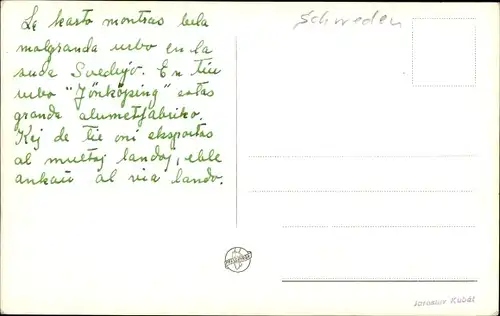 La karto montras bela
malgranda urbo en la
suda Svedujo. En tiu
urbo "Jönköping" estas
granda alumetfabriko.
Kej de tie oni eksportas
al multaj landoj, eble
ankaŭ al via lando.
Schweden
Jaroslav Kubát